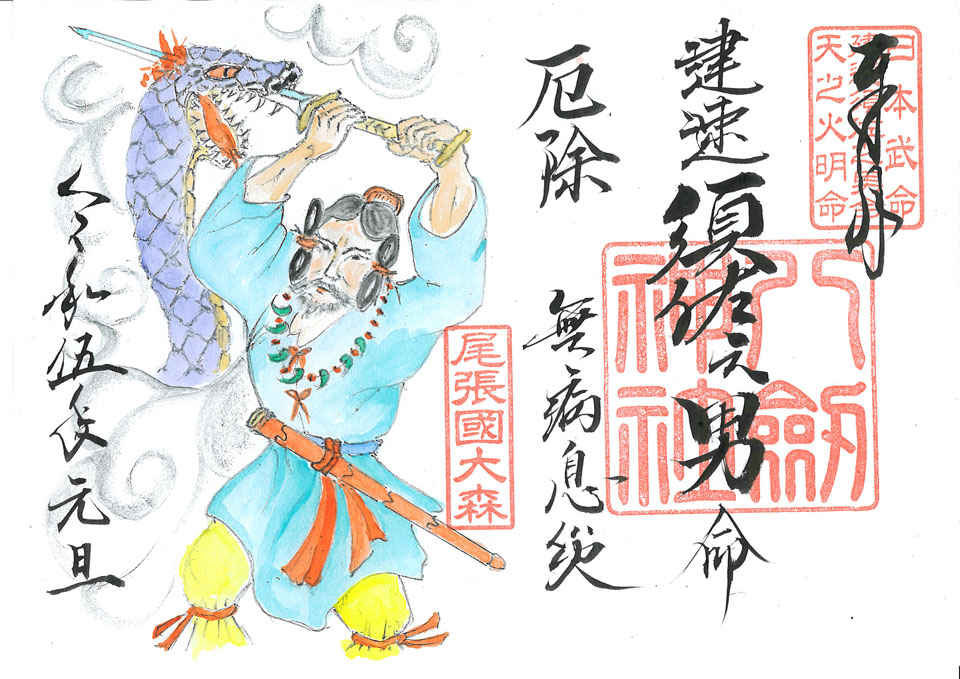 奉拝
日本武命
建速須佐之男命
天之火明命
建速須佐之男命
八劔
神社
厄除
無病息災
尾張國大森
令和伍年元旦